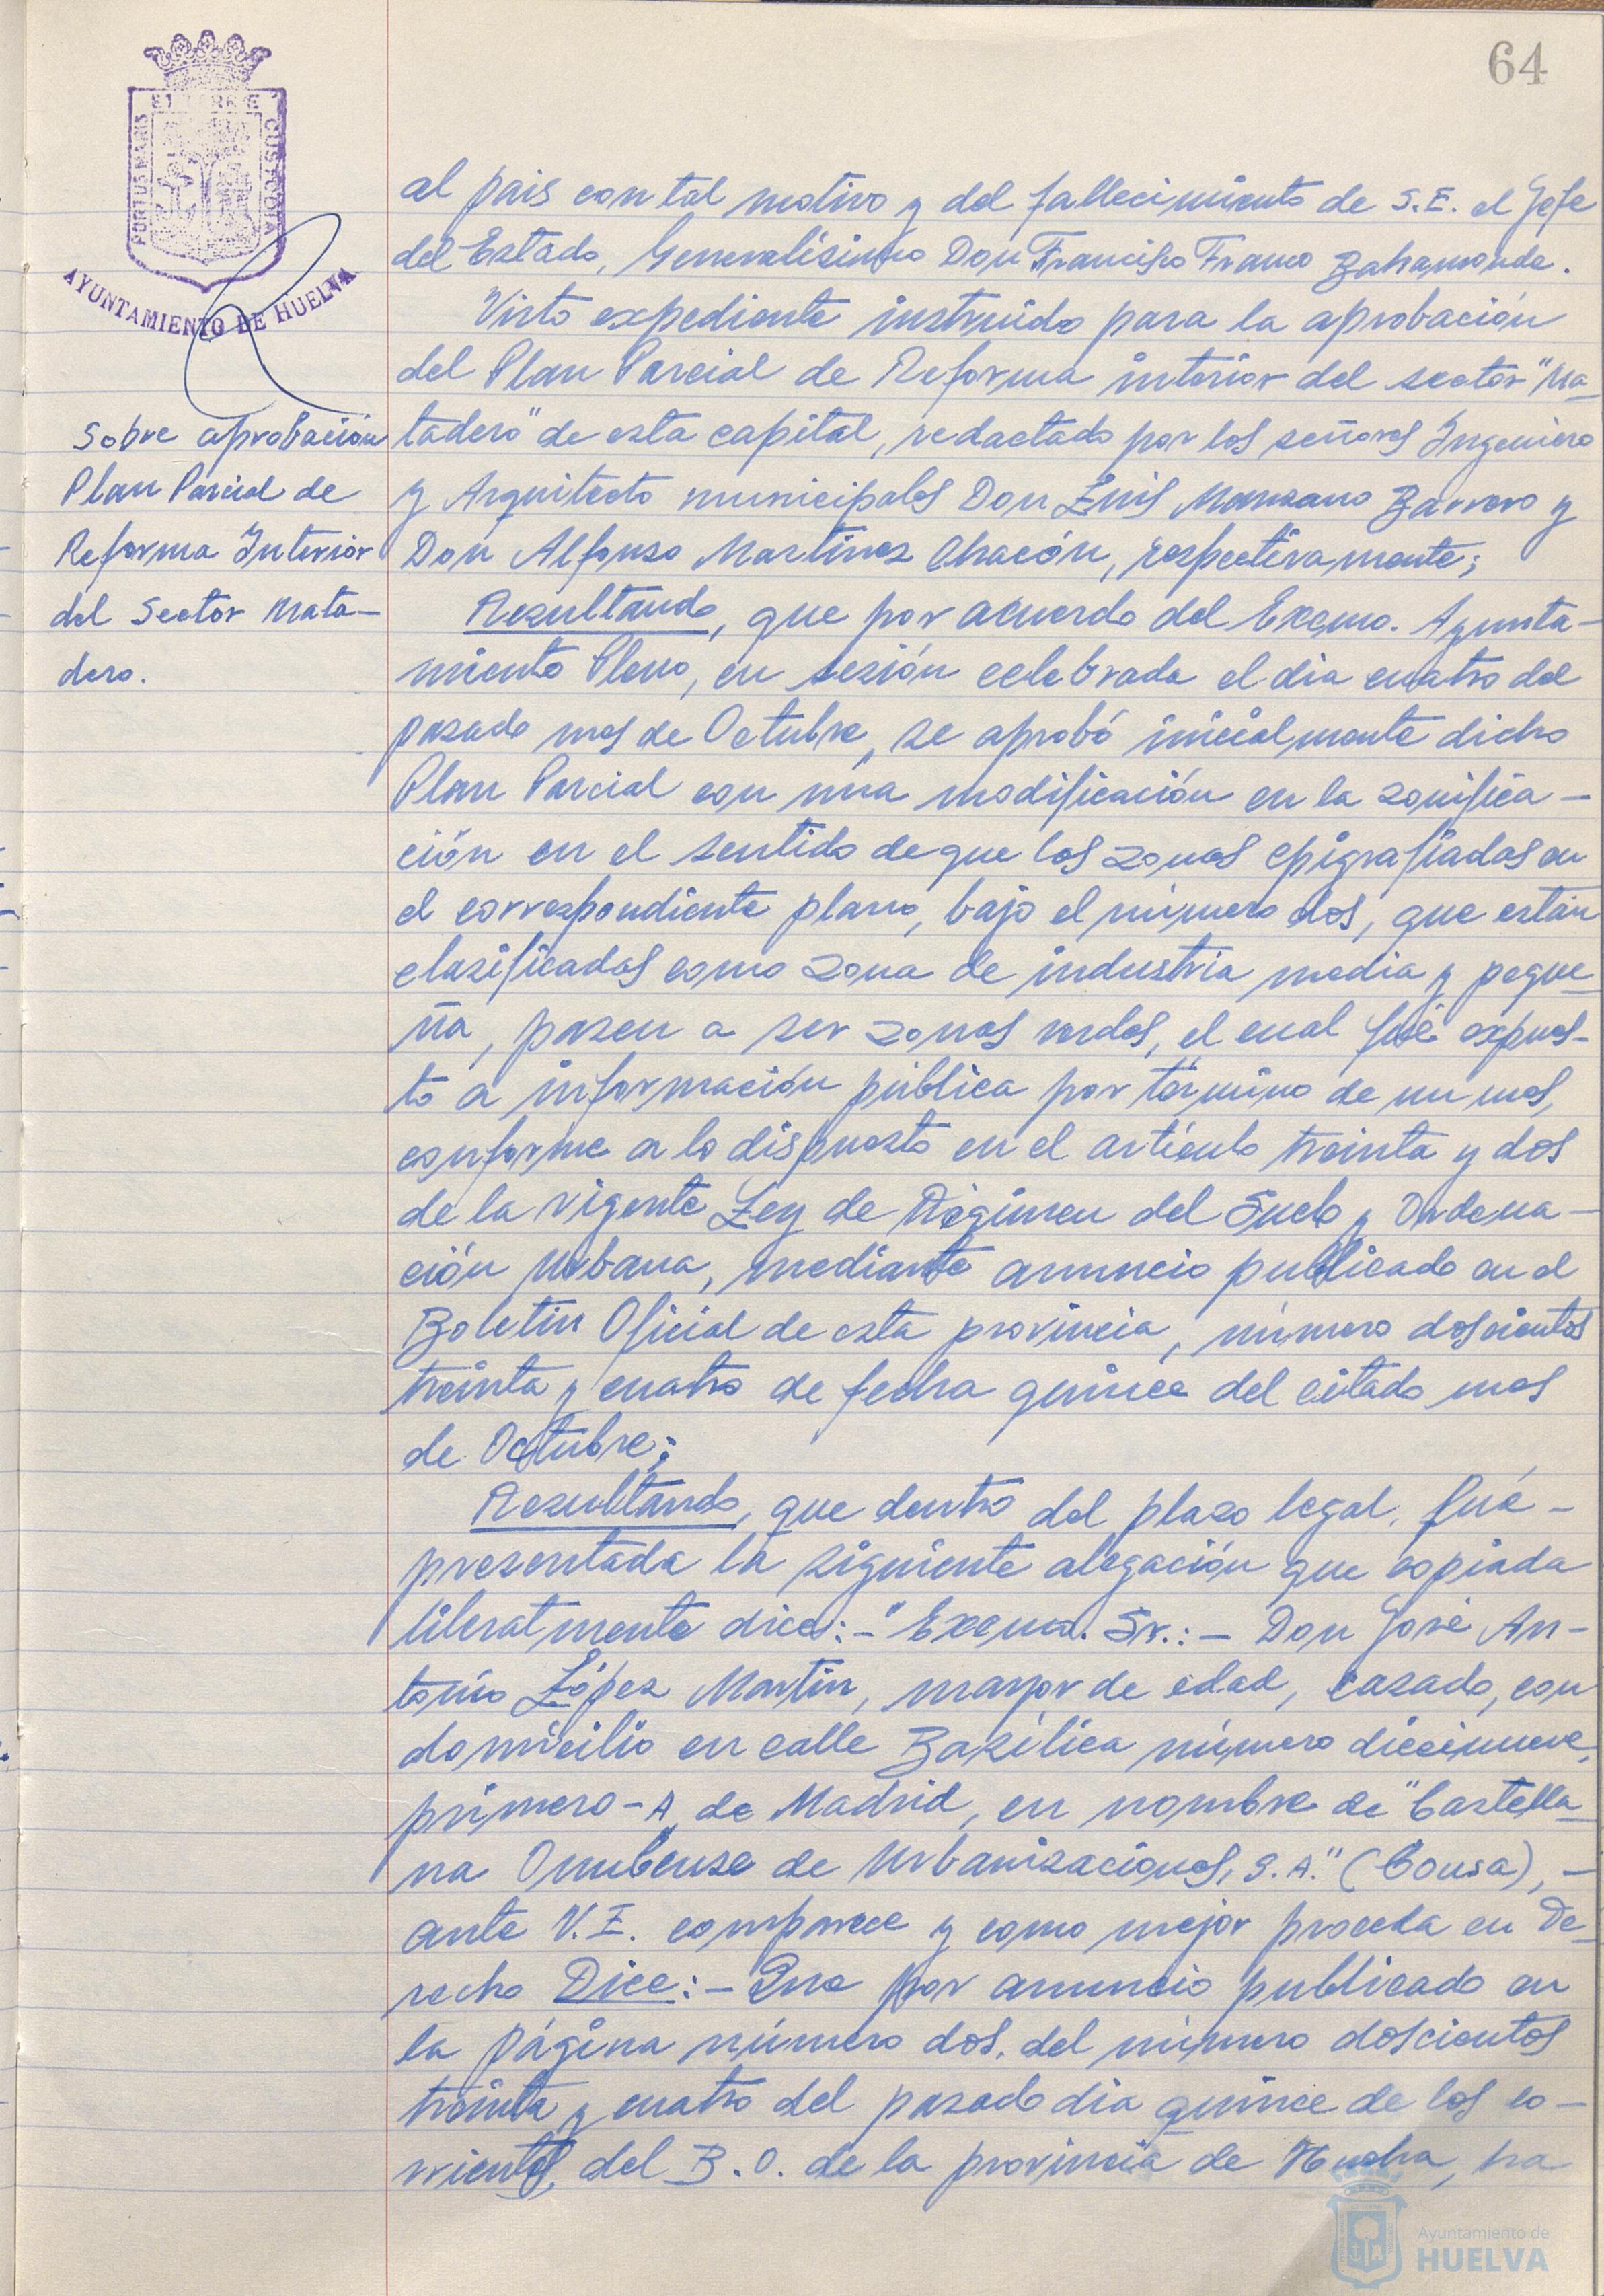 64
PORTUS MARIS
ET TERRE
CUSTODIA
AYUNTAMIENTO DE HUELVA
Sobre aprobación
Plan Parcial de
Reforma Interior
del Sector Mata-
dero.
al pais con tal motivo y del fallecimiento de S.E. el Jefe
del Estado, Generalísimo Don Francisco Franco Bahamonde.
Visto expediente instruido para la aprobación
del Plan Parcial de Reforma interior del sector "Ma-
tadero" de esta capital, redactado por los señores Ingeniero
y Arquitecto municipales Don Luis Manzano Barrero y
Don Alfonso Martinez Chacón, respectivamente;
Resultando, que por acuerdo del Excmo. Ayunta-
miento Pleno, en sesión celebrada el dia cuatro del
pasado mes de Octubre, se aprobó inicialmente dicho
Plan Parcial con una modificación en la zonifica-
ción en el sentido de que las zonas epigrafiadas en
el correspondiente plano, bajo el número dos, que están
clasificadas como zona de industria media y peque-
ña, pasen a ser zonas verdes, el cual fué expues-
to a información pública por término de un mes,
conforme a lo dispuesto en el artículo treinta y dos
de la vigente Ley de Régimen del Suelo y Ordena-
ción Urbana, mediante anuncio publicado en el
Boletin Oficial de esta provincia, número doscientos
treinta y cuatro de fecha quince del citado mes
de Octubre;
Resultando, que dentro del plazo legal, fué-
presentada la siguiente alegación que copiada
literalmente dice:-"Excmo. Sr.:- Don José An-
tonio López Martin, mayor de edad, casado, con
domicilio en calle Basílica número diecinueve,
primero-A, de Madrid, en nombre de "Castella-
na Onubense de Urbanizaciones, S.A." (Cousa),-
ante V.E. comparece y como mejor proceda en De-
recho Dice:- Que por anuncio publicado en
la página número dos, del número doscientos
treinta y cuatro del pasado dia quince de los co-
rrientes, del B.O. de la provincia de Huelva, ha
Ayuntamiento de
HUELVA